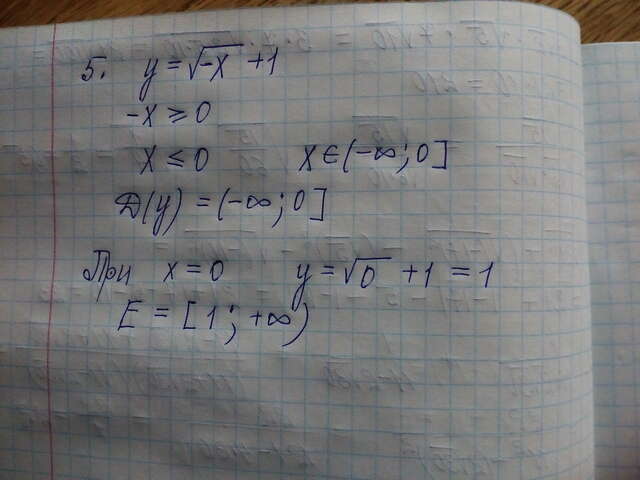 5. y = √-x + 1
-x ≥ 0
x ≤ 0 x ∈ (-∞; 0]
D(y) = (-∞; 0]
При x = 0 y = √0 + 1 = 1
E = [1; +∞)